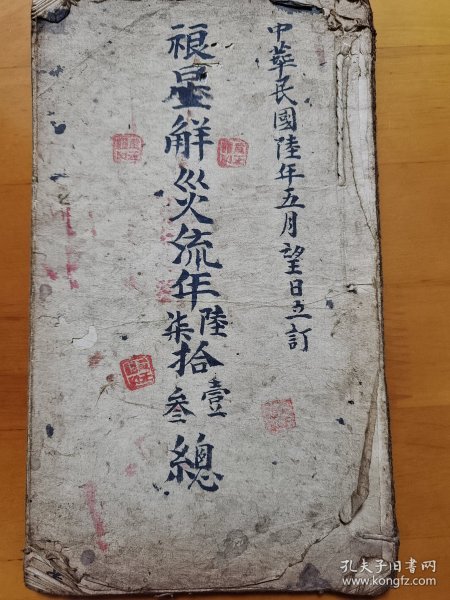 中華民國陸年五月望日立訂
星觧災流年陸柒拾壹叁總
孔夫子旧书网
www.kongfz.com